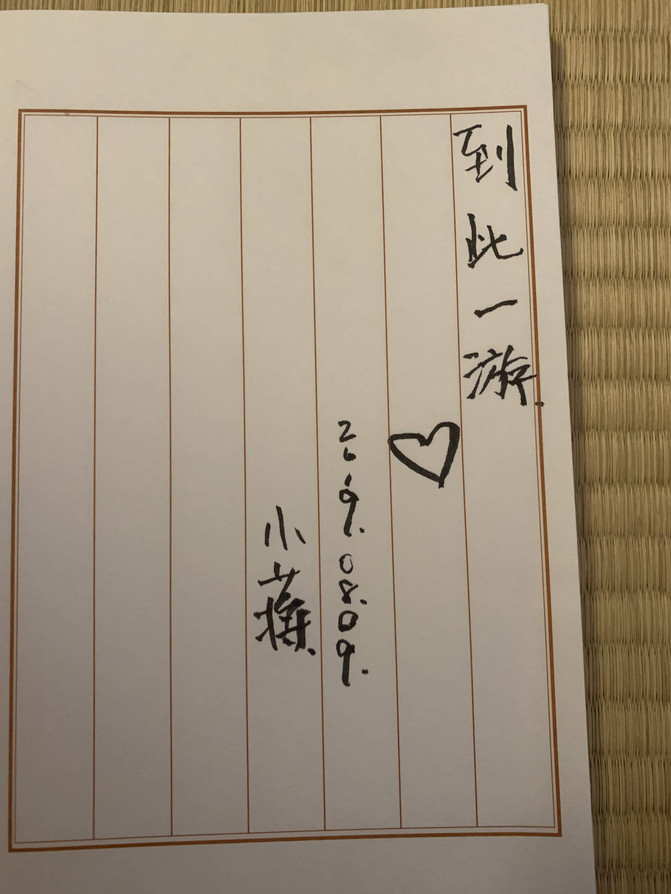 到此一游.
2019.08.09.
小蒋.